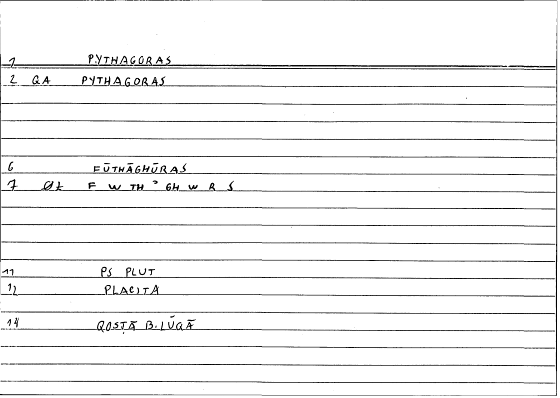 1 PYTHAGORAS
2 QA PYTHAGORAS
6 FŪTHĀGHŪRAS
7 F W TH ʾ GH W R S
11 PS PLUT
12 PLACITA
14 QOSṬĀ B. LŪQĀ